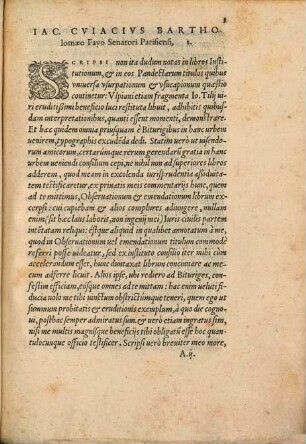 3
IAC. CVIACIVS BARTHO
lomæo Fayo Senatori Parisiensi, s.
SCRIPSI non ita dudum notas in libros Insti
tutionum, & in eos Pandectarum titulos quibus
vniuersa vsurpationum & vsucapionum quæstio
continetur: Vlpiani etiam fragmenta Io. Tilij vi
ri eruditissimi beneficio luci restituta libuit, adhibitis quibus-
dam interpretationibus, quanti essent momenti, demonstrare.
Et hæc quidem omnia priusquam è Biturigibus in hanc vrbem
venirem, typographis excudenda dedi. Statim verò vt visen-
dorum amicorum, certarúmque rerum gerendarū gratia in hanc
vrbem veniendi consilium cepi, ne nihil non ad superiores libros
adderem, quod meam in excolenda iurisprudentia assiduita-
tem testificaretur, ex priuatis meis commentarijs hunc, quem
ad te mittimus, Obseruationum & emendationum librum ex-
cerpsi: cui cupiebam & alios complures adiungere, nullam
enim (sit hæc laus laboris, non ingenij mei) Iuris ciuilis partem
intentatam reliqui: éstque aliquid in qualibet annotatum à me,
quod in Obseruationum vel emendationum titulum commodè
referri posse videatur, sed ex instituto consilio iter mihi cùm
accelerandum esset, hunc duntaxat librum concinnare ac me-
cum adferre licuit. Alios ipse, vbi rediero ad Bituriges, con-
festim efficiam, eósque omnes ad te mittam: hac enim velut fi-
ducia volo me tibi vinctum obstrictúmque teneri, quem ego vt
summum probitatis & eruditionis exemplum, à quo die cogno-
ui, posthac semper admiratus sum. & verò etiam ingratus sim,
nisi me multis magnisque beneficijs tibi obligatū esse hoc quan-
tulocunque officio testificer. Scripsi verò breuiter meo more,
A.ij.